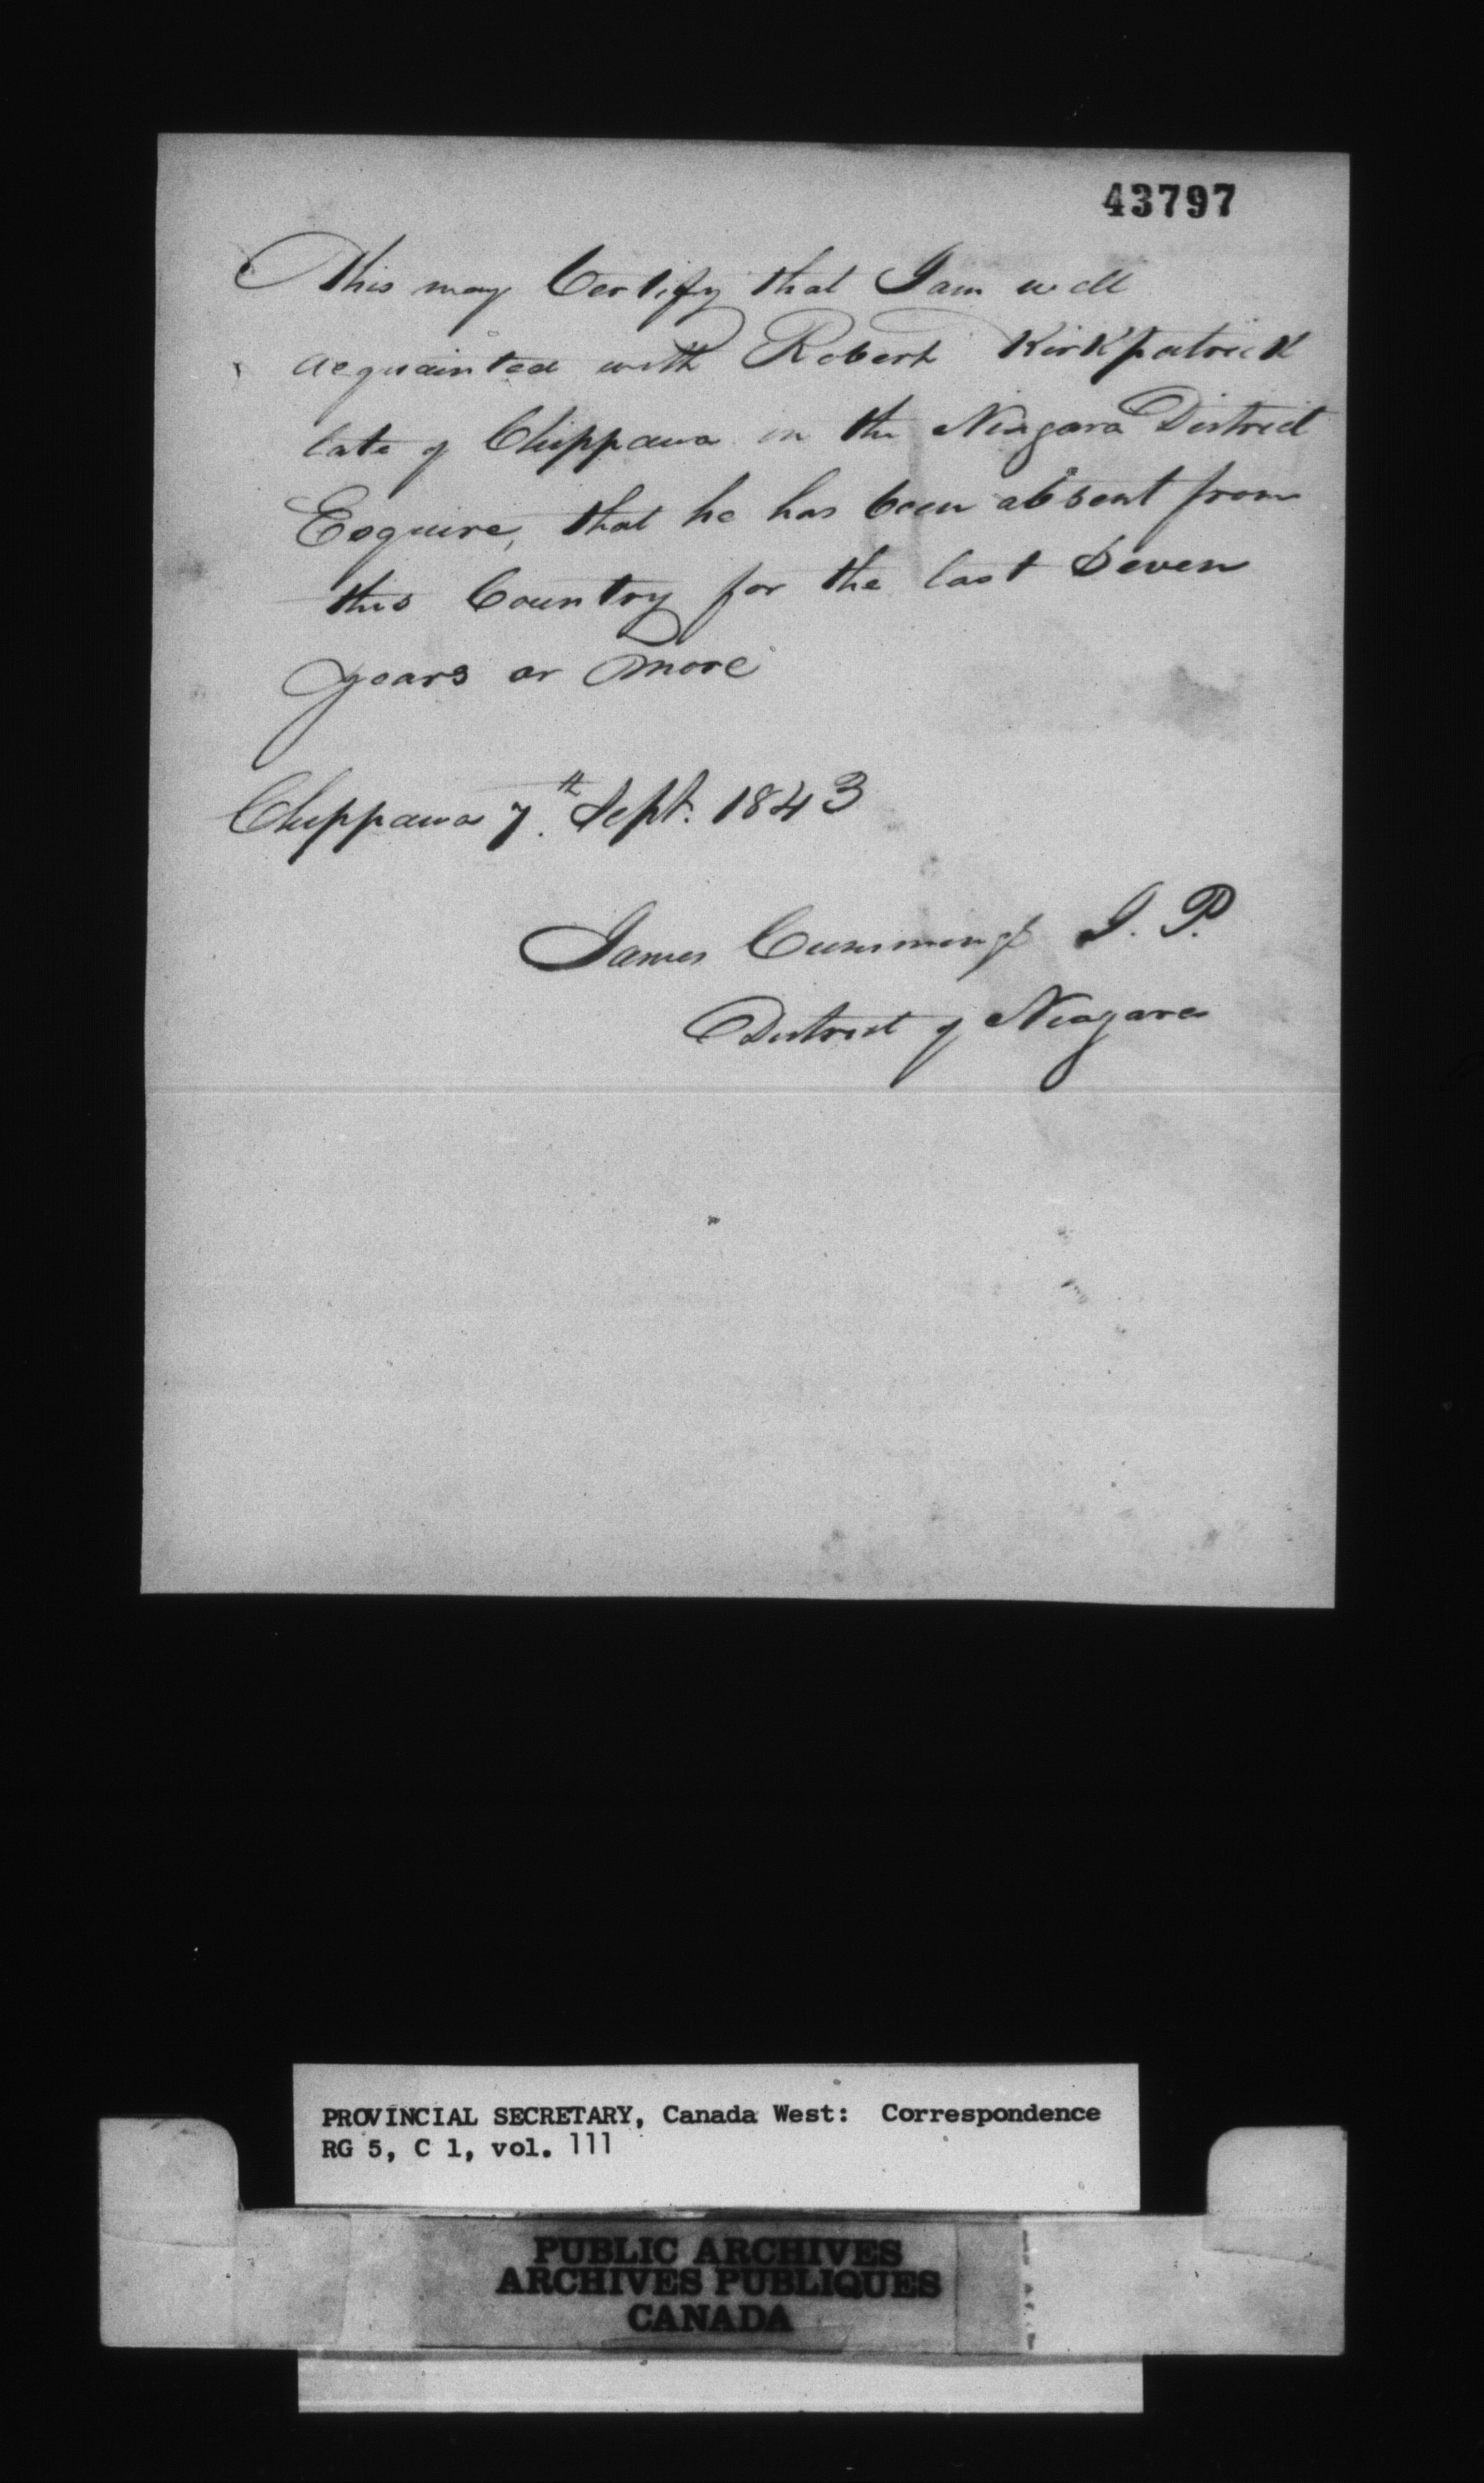 43797
This may Certify that I am well
acquainted with Robert Kirkpatrick
late of Chippawa in the Niagara District
Esquire, that he has been absent from
this Country for the last Seven
years or more
Chippawa 7th. Sept. 1843
James Cummings J. P.
District of Niagara
PROVINCIAL SECRETARY, Canada West: Correspondence
RG 5, C 1, vol. 111
PUBLIC ARCHIVES
ARCHIVES PUBLIQUES
CANADA